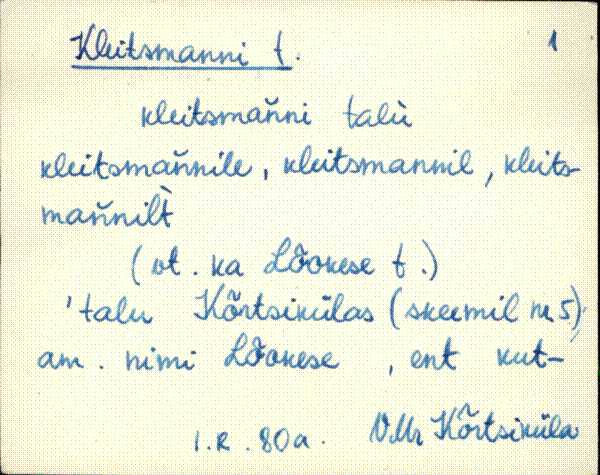 Kleitsmanni t. 1
kleitsmaňni talù
kleitsmaňnile, kleitsmannil, kleits-
maňnilt̀
(vt. ka Lõokese t.)
'talu Kõrtsikülas (skeemil nr. 5)
am. nimi Lõokese, ent kut-
I. R. 80a. VMr Kõrtsiküla